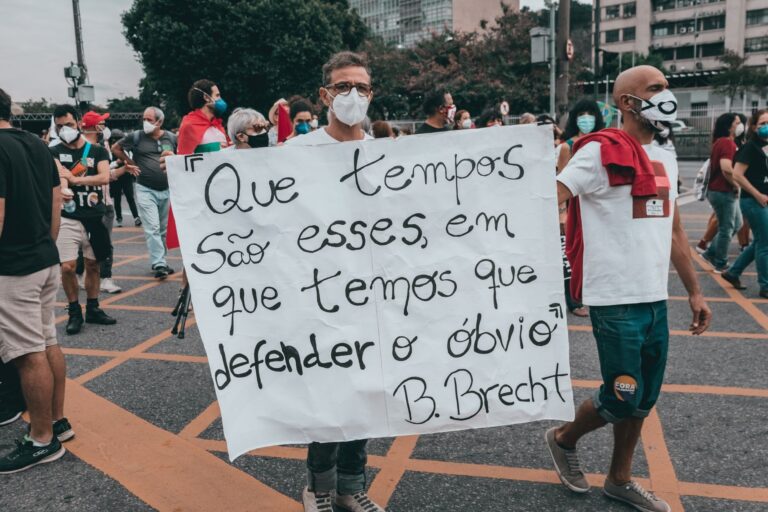 "Que tempos
São esses, em
que temos que
defender o óbvio"
B. Brecht
FORA